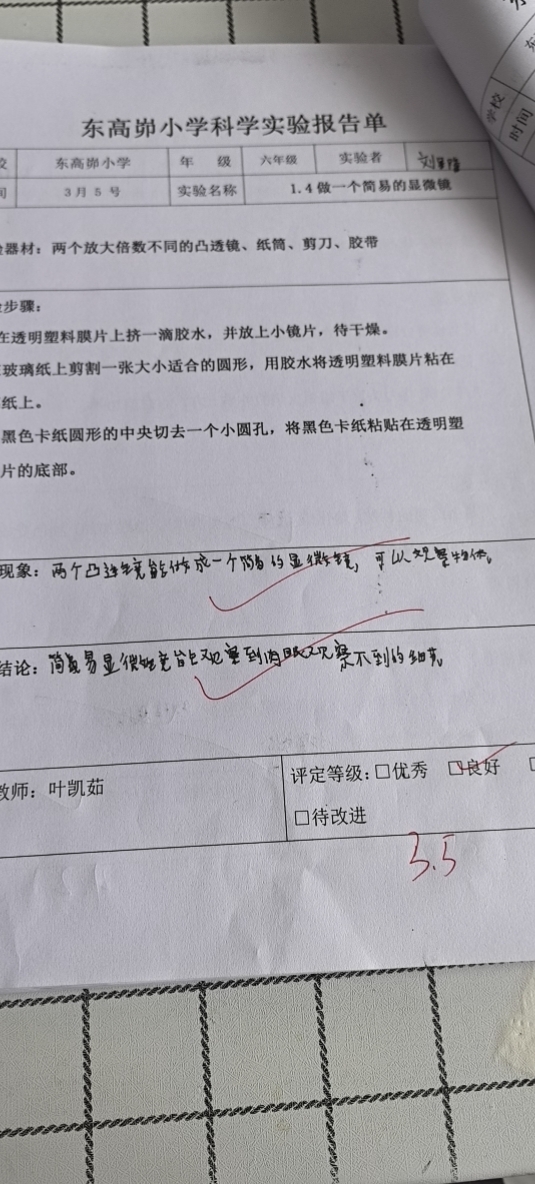 东高峁小学科学实验报告单
校 东高峁小学 年 级 六年级 实验者
间 3月5号 实验名称 1.4做一个简易的显微镜
验器材：两个放大倍数不同的凸透镜、纸筒、剪刀、胶带
步骤：
在透明塑料膜片上挤一滴胶水，并放上小镜片，待干燥。
玻璃纸上剪割一张大小适合的圆形，用胶水将透明塑料膜片粘在
纸上。
黑色卡纸圆形的中央切去一个小圆孔，将黑色卡纸粘贴在透明塑
片的底部。
现象：两个凸透镜能做成一个简易的显微镜，可以观察物体。
结论：简易显微镜能观察到肉眼观察不到的细节
教师：叶凯茹
评定等级：□优秀 □良好
□待改进
3.5
学校
时间